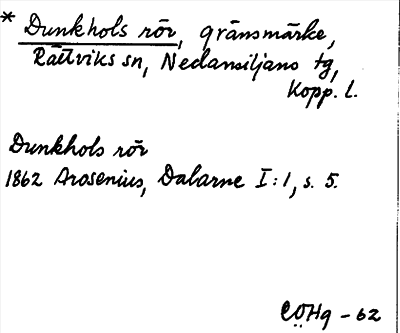 * Dunkhols rör, gränsmärke,
Rättviks sn, Nedansiljans tg,
Kopp. l.
Dunkhols rör
1862 Arosenius, Dalarne I:1, s. 5.
CÖHg - 62